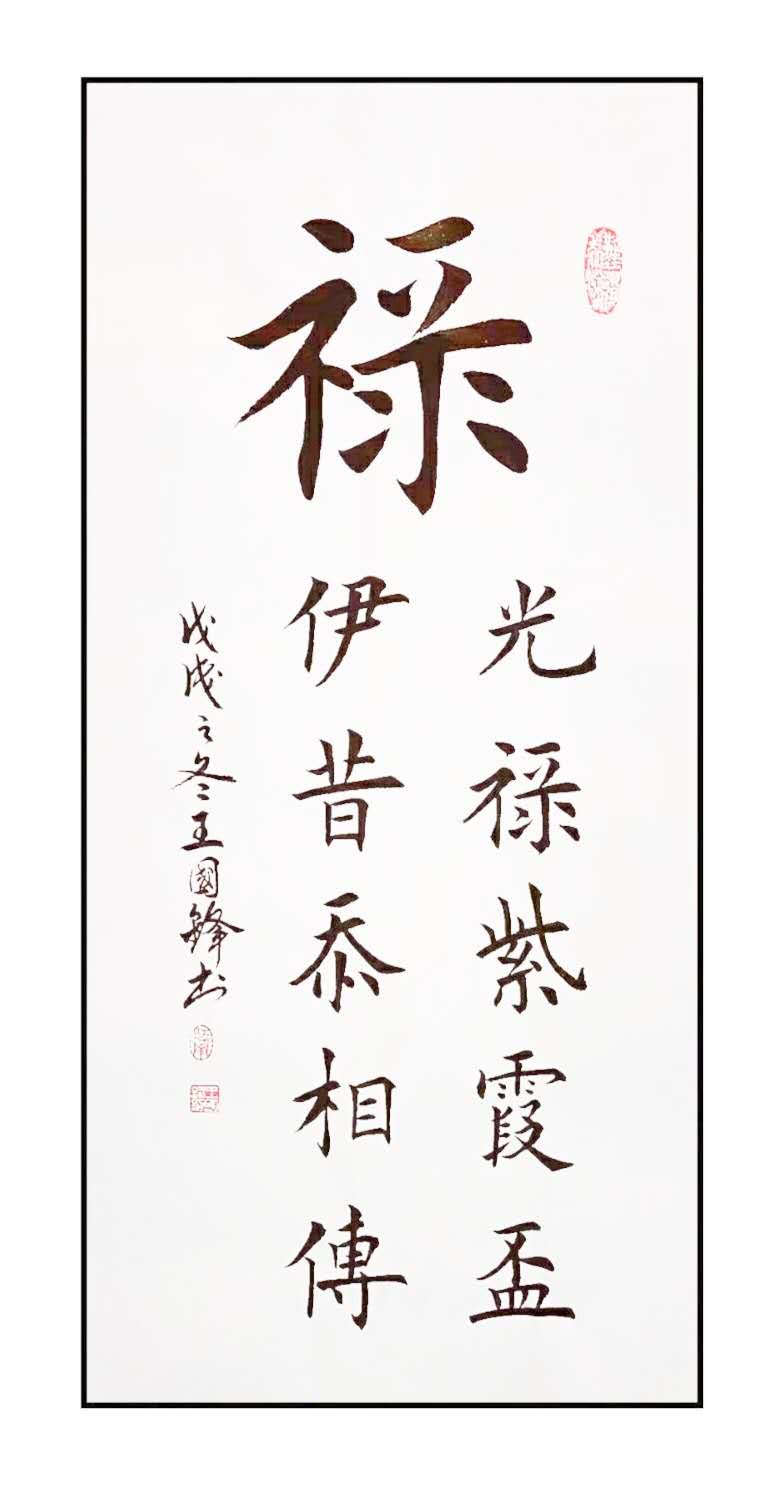 禄
光禄紫霞盃
伊昔忝相傳
戊戌之冬王國鋒书